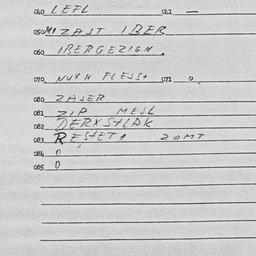 040 LEFL 041 —
050 MIZAST IBER
060 IBERGEZIGN.
070 NUXN FLESS+ 071 0.
080 ZASER
081 ZIP MESL
082 DERXSTLAK
083 RESTET1 ZOMT
084 0
085 0